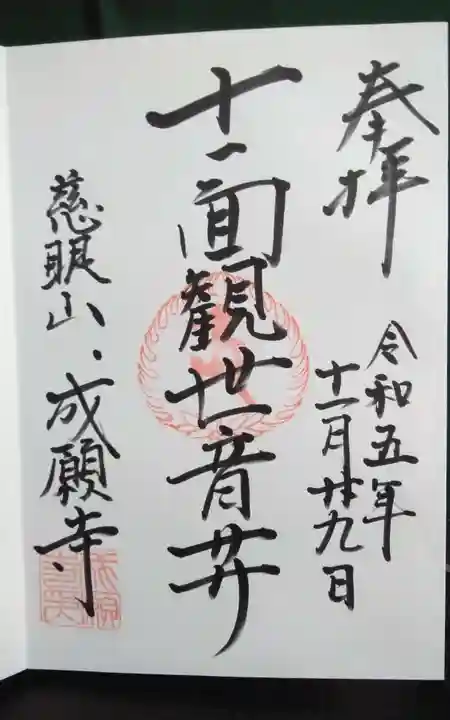 奉拝
令和五年
十一月廿九日
十一面観世音廾
慈眼山、成願寺